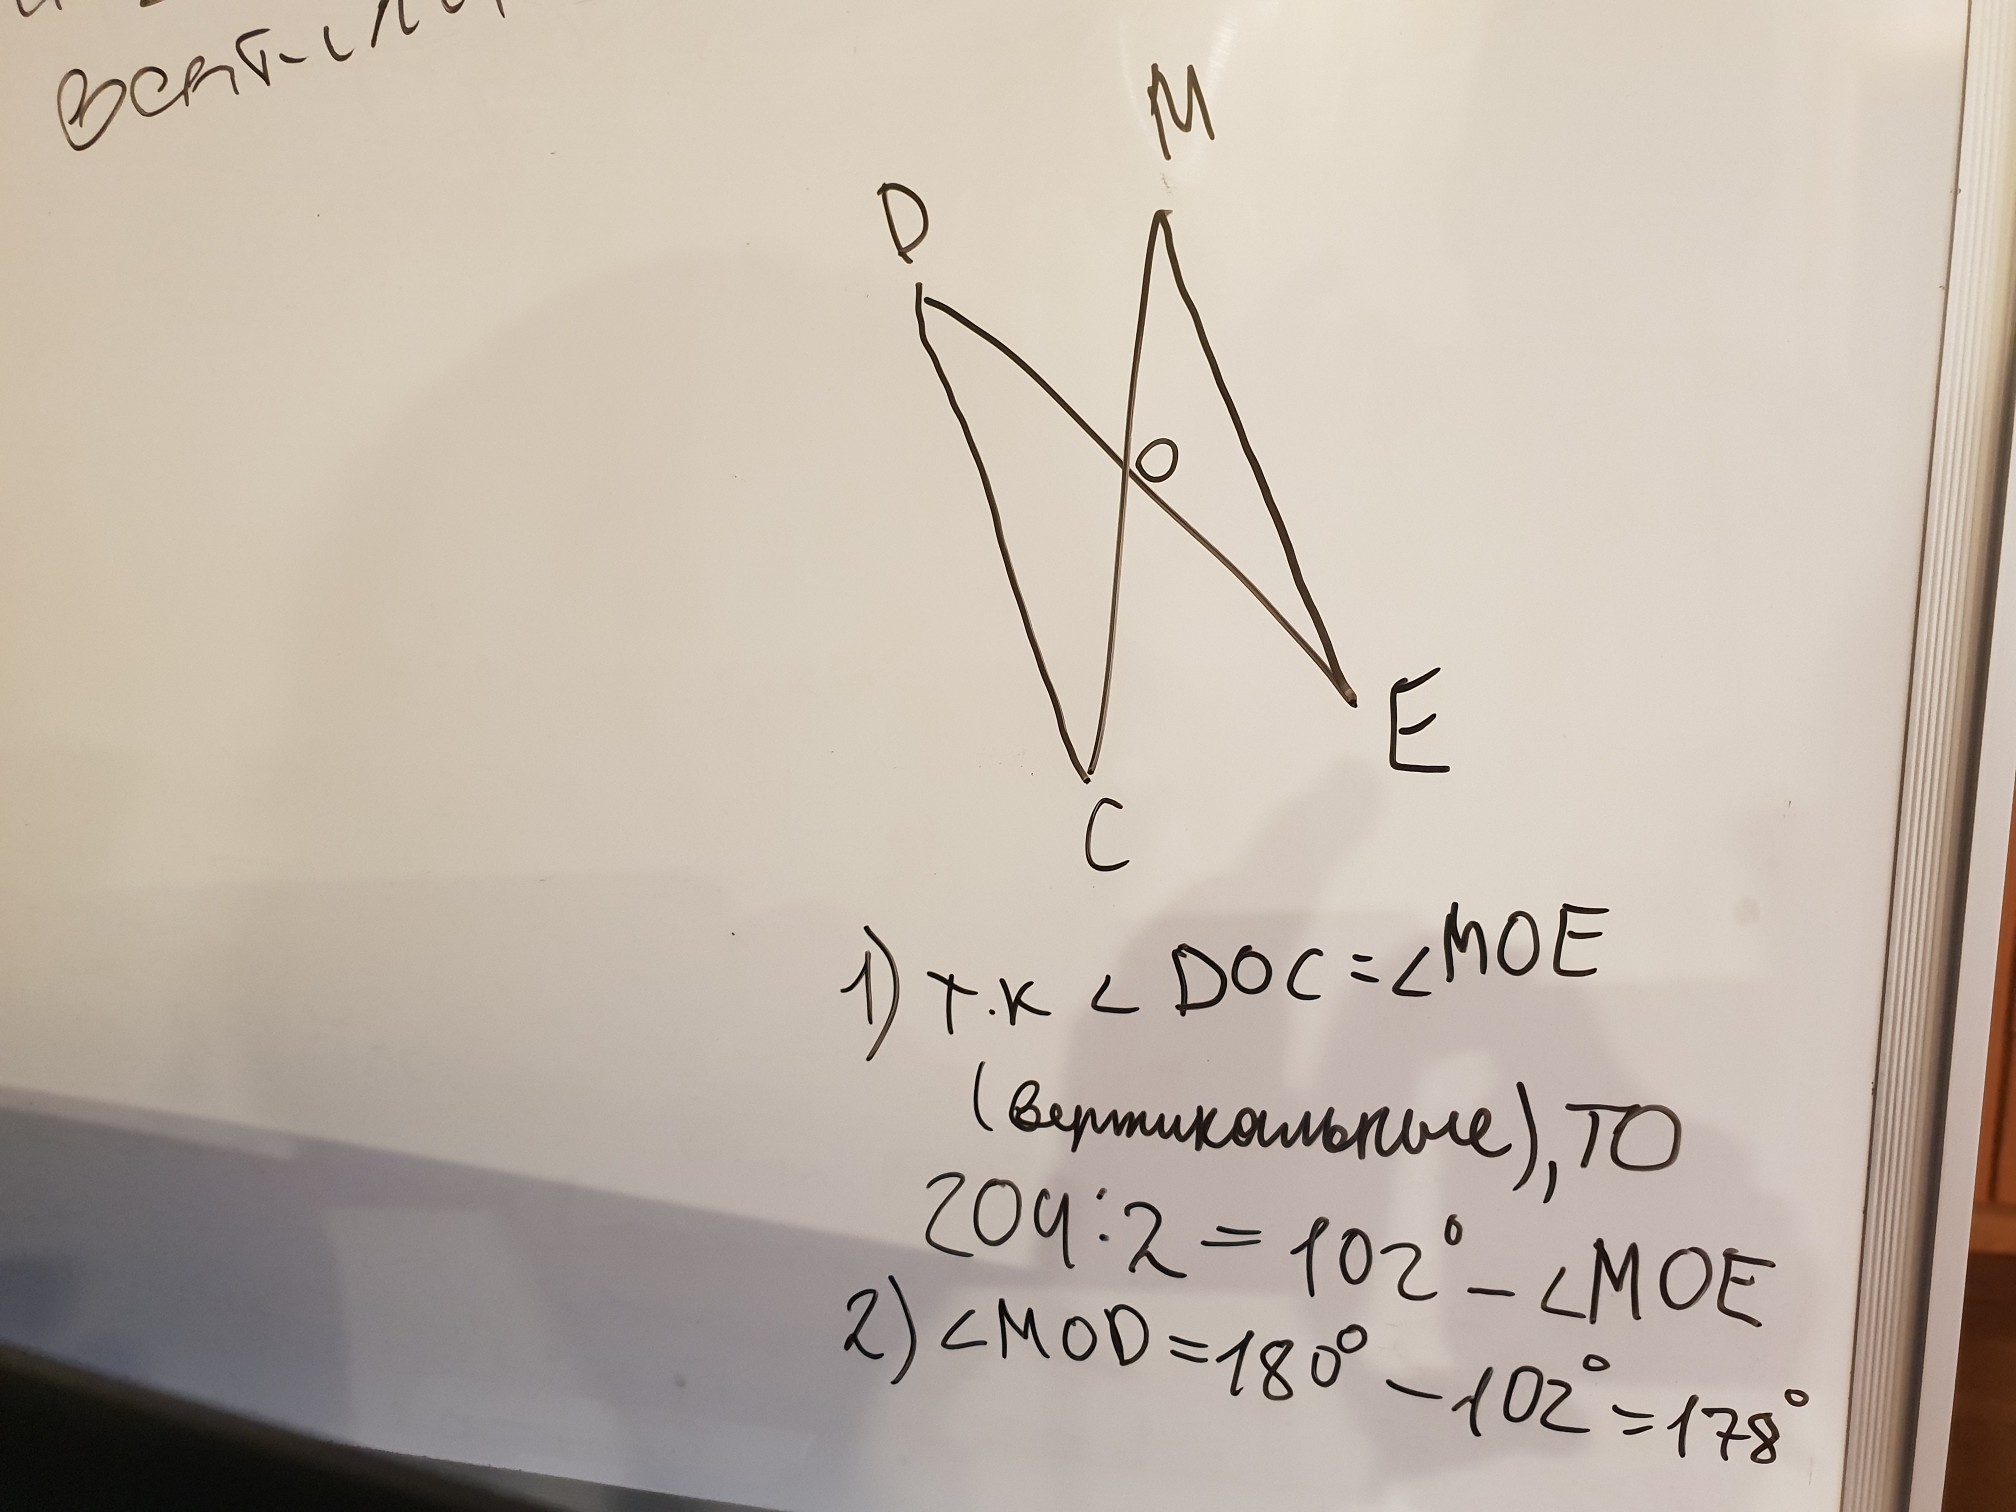 M
D
O
E
C
1) т.к < DOC = < MOE
(вертикальные), ТО
204:2 = 102° - < MOE
2) < MOD = 180° - 102° = 178°